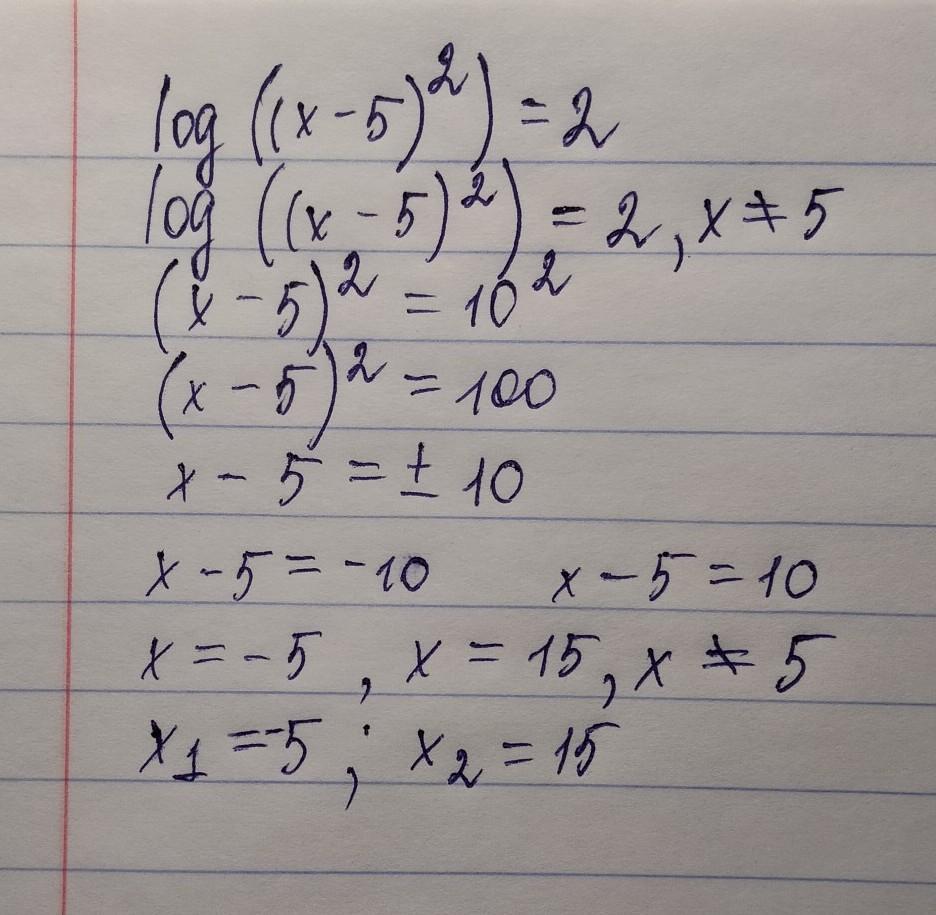 log ((x - 5)²) = 2
log ((x - 5)²) = 2, x ≠ 5
(x - 5)² = 10²
(x - 5)² = 100
x - 5 = ± 10
x - 5 = -10 x - 5 = 10
x = -5 , x = 15, x ≠ 5
x₁ = -5 ; x₂ = 15